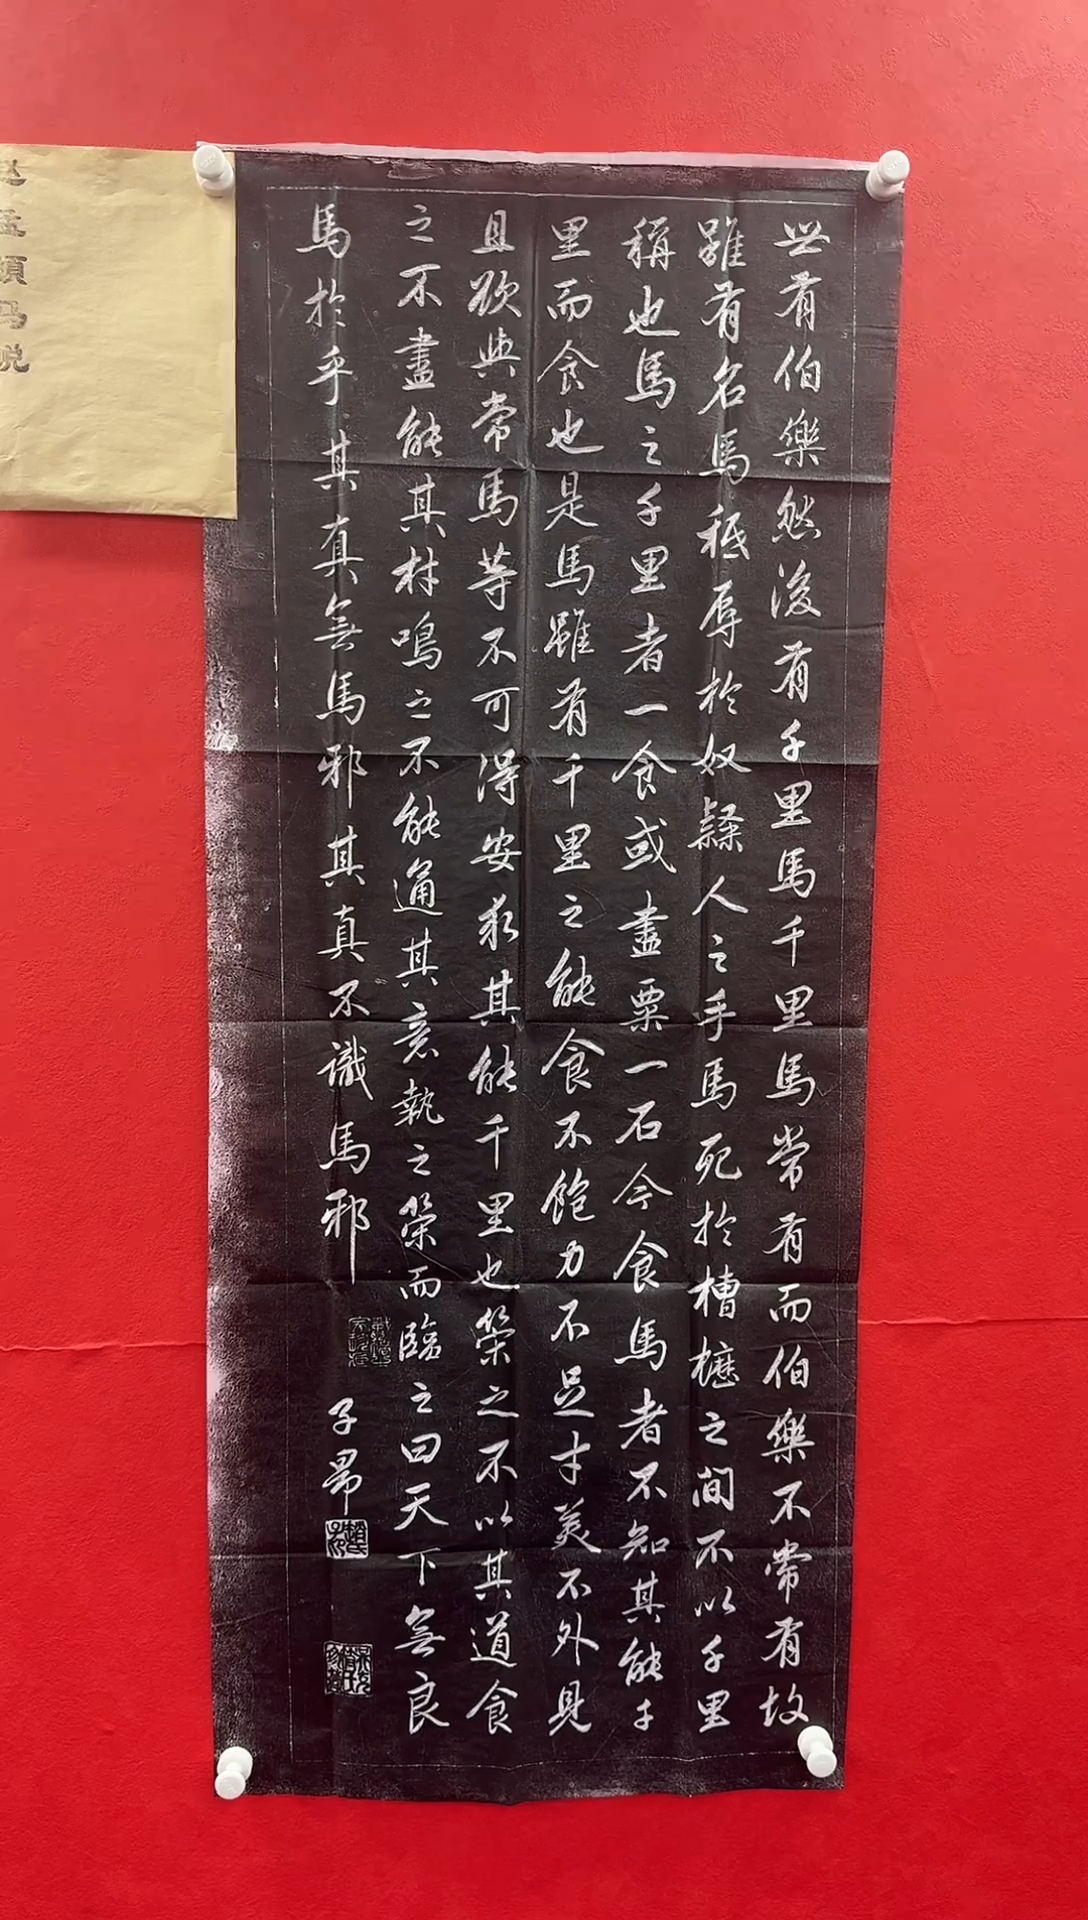 世有伯樂然後有千里馬千里馬常有而伯樂不常有故
雖有名馬秪辱於奴隸人之手馬死於槽櫪之間不以千里
稱也馬之千里者一食或盡粟一石今食馬者不知其能千
里而食也是馬雖有千里之能食不飽力不足才美不外見
且欲與常馬等不可得安求其能千里也策之不以其道食
之不盡能其材鳴之不能通其意執之策而臨之曰天下無良
馬於乎其真無馬邪其真不識馬邪
子昂
赵孟頫马说